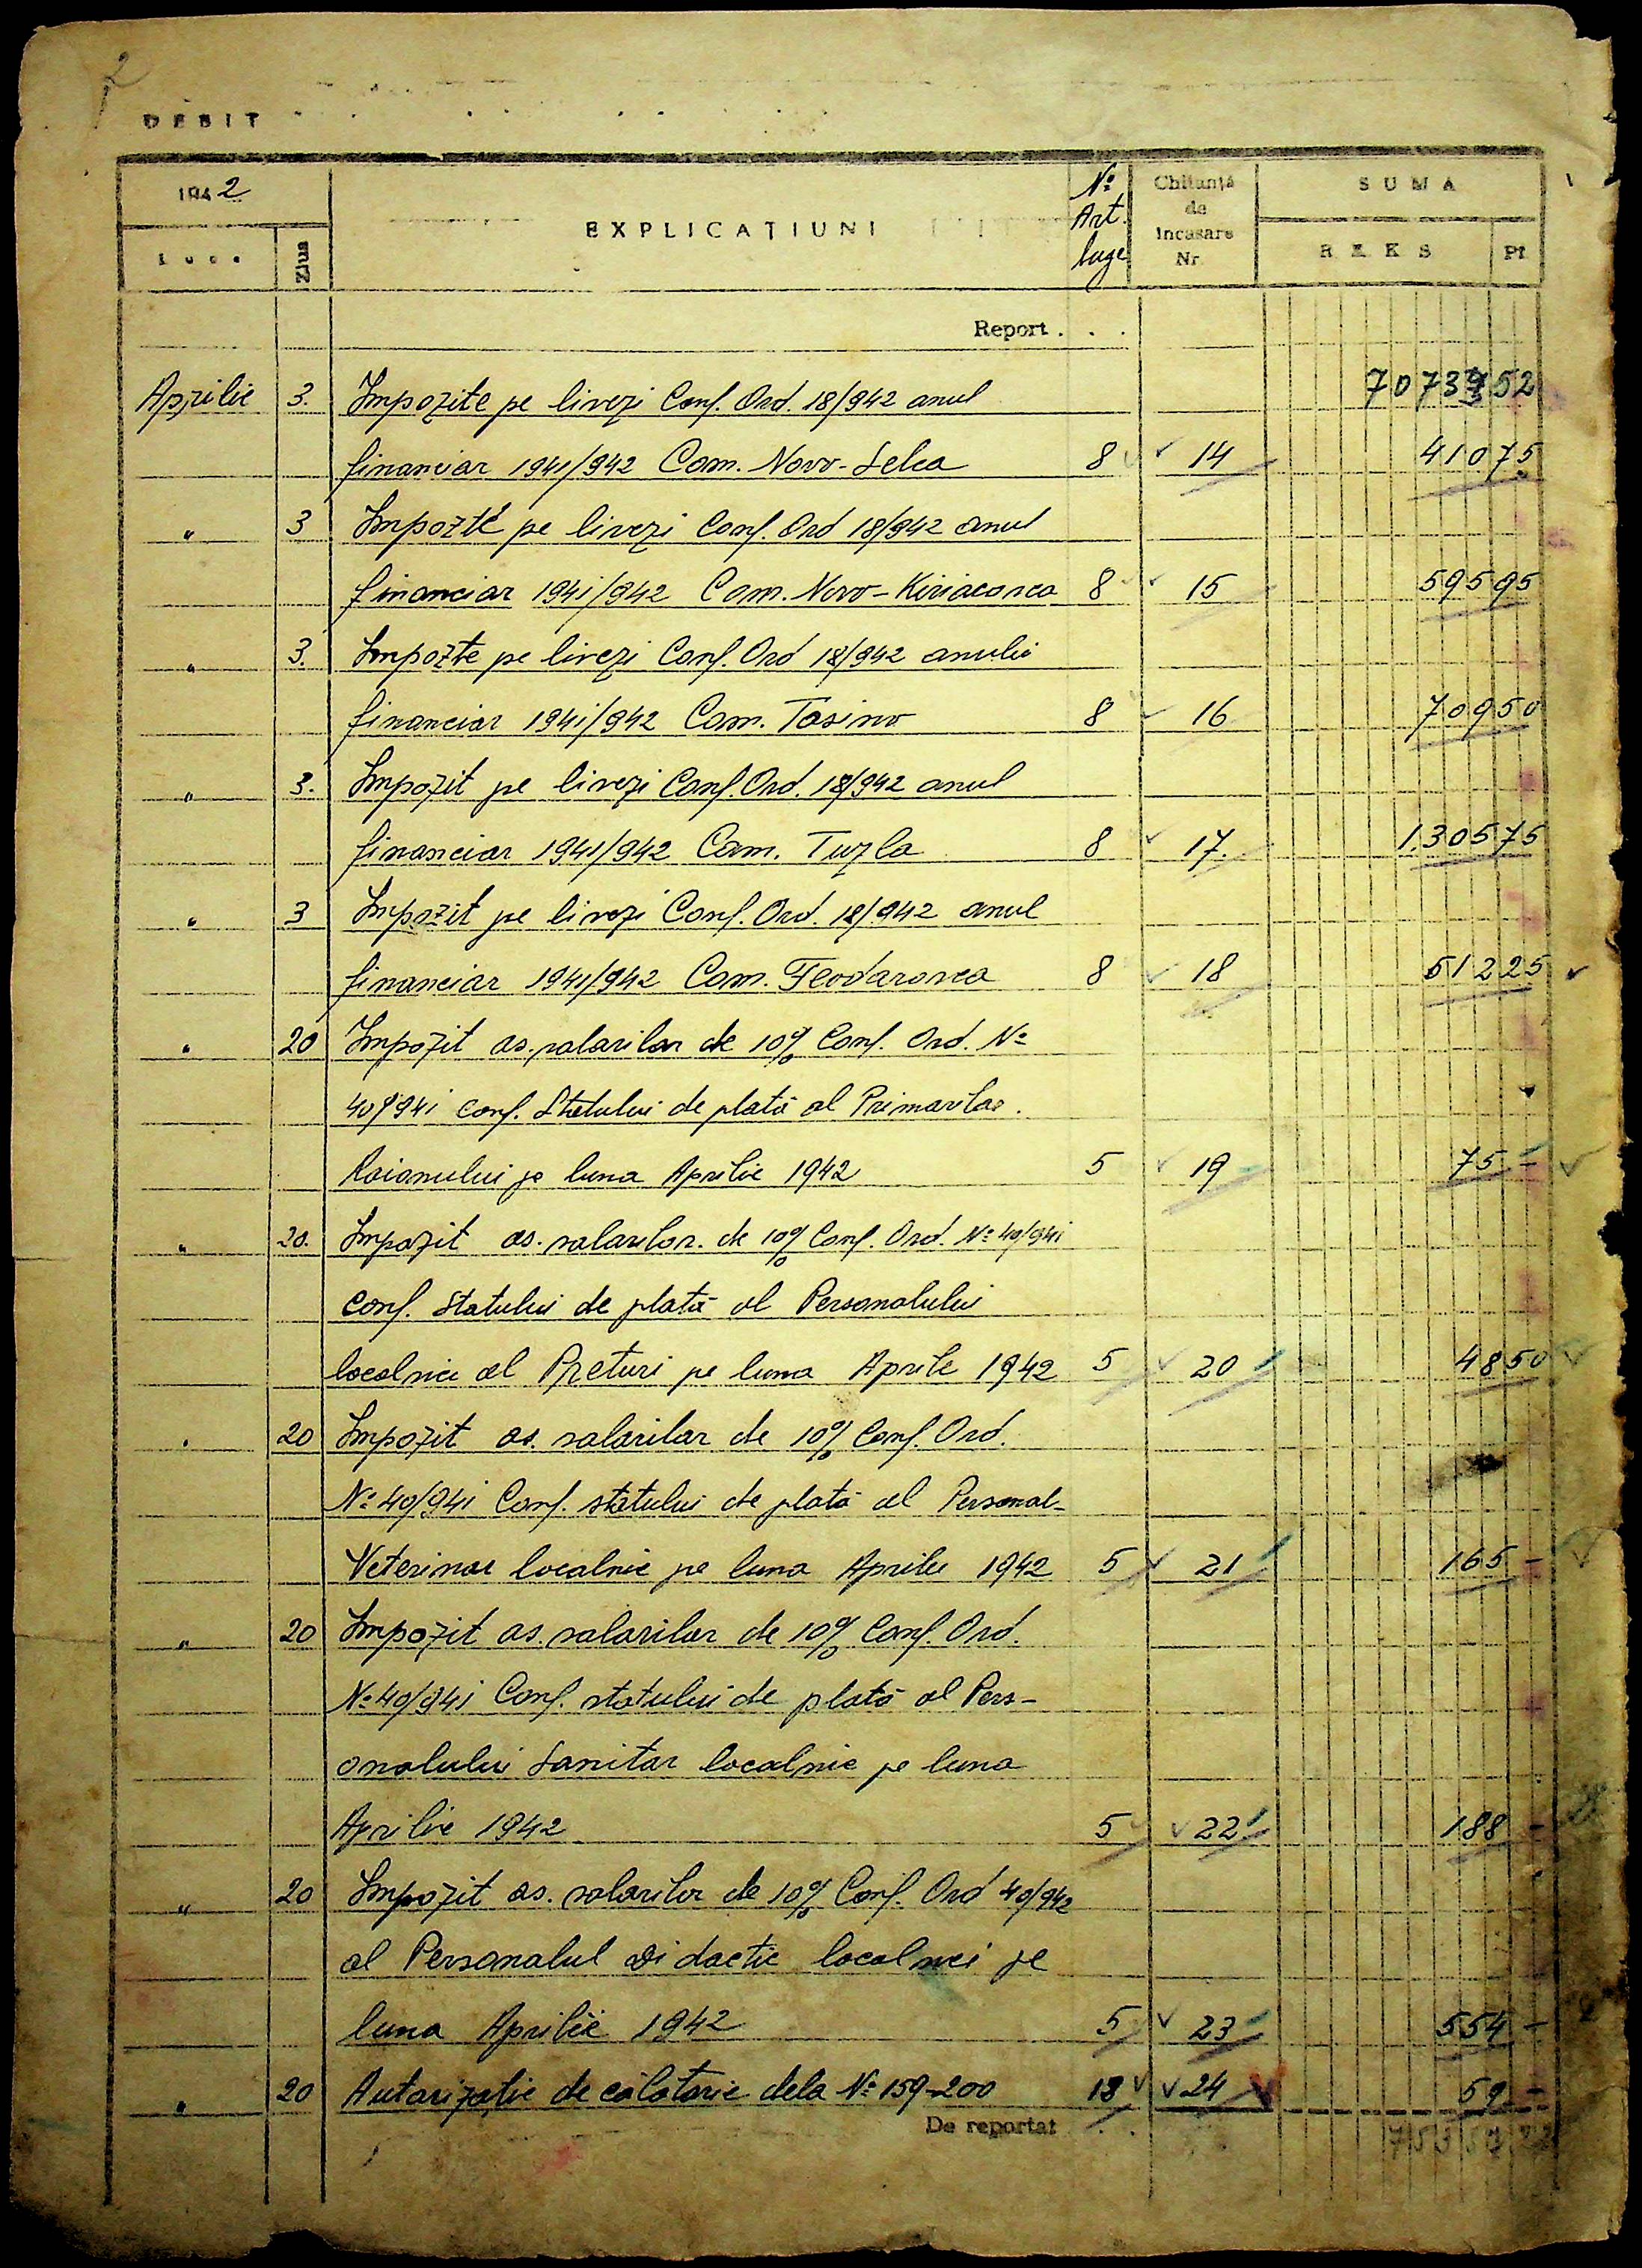 2
DEBIT
1942
Luna
Ziua
EXPLICAȚIUNI
No
Art.
buge
Chitanță
de
incasare
Nr
SUMA
REKS
Pf
Report . . .
Aprilie 3. Impozite pe livezi Conf. Ord. 18/942 anul 7073 52
financiar 1941/942 Com. Novo-Selca 8 14 410 75
" 3 Impozte pe livezi Conf. Ord 18/942 anul
financiar 1941/942 Com. Novo-Kiriaconca 8 15 595 95
" 3. Impozte pe livezi Conf. Ord 18/942 anului
financiar 1941/942 Com. Tasino 8 16 709 50
" 3. Impozit pe livezi Conf. Ord. 18/942 anul
financiar 1941/942 Com. Tuzla 8 17. 1.305 75
" 3 Impozit pe livezi Conf. Ord. 18/942 anul
financiar 1941/942 Com. Feodarovca 8 18 512 25
" 20 Impozit as. salarilor de 10% Conf. Ord. No
40/941 conf. Statului de plată al Primarilor.
Raionului pe luna Aprilie 1942 5 19 75 -
" 20. Impozit as. salarilor. de 10% Conf. Ord. No 40/941
conf. Statului de plată al Personalului
localnic al Preturi pe luna Aprile 1942 5 20 48 50
" 20 Impozit as. salarilor de 10% Conf. Ord.
No 40/941 Conf. statului de plată al Personal-
Veterinar localnic pe luna Aprilie 1942 5 21 165 -
" 20 Impozit as. salarilor de 10% Conf. Ord.
No 40/941 Conf. statului de plată al Pers-
onalului Sanitar localnic pe luna
Aprilie 1942 5 22 188 -
" 20 Impozit as. salarilor de 10% Conf. Ord 40/942
al Personalul Didactic localnici pe
luna Aprilie 1942 5 23 554 -
" 20 Autorizatie de călătorie dela No 159-200 13 24 59 -
De reportat . .